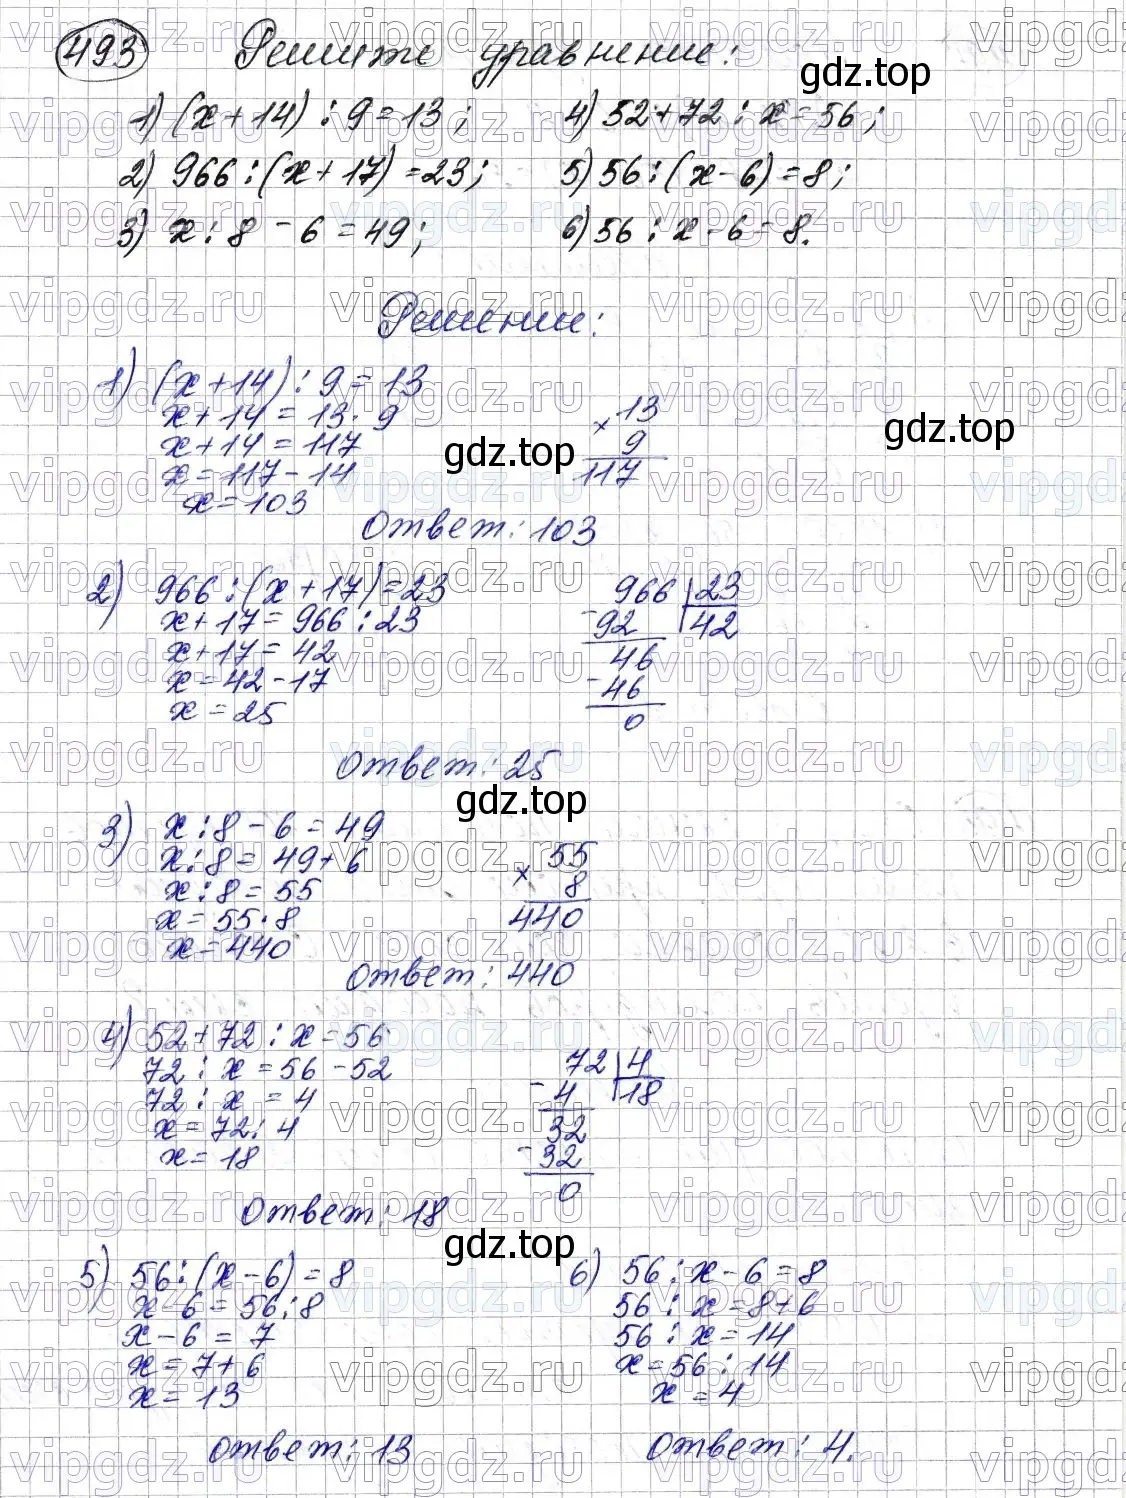 493 Решите уравнение:
gdz.top
1) (x+14) : 9 = 13; 4) 52 + 72 : x = 56;
2) 966 : (x + 17) = 23; 5) 56 : (x - 6) = 8;
3) x : 8 - 6 = 49; 6) 56 : x - 6 = 8.
Решение:
1) (x+14) : 9 = 13
x + 14 = 13 · 9
x + 14 = 117
x = 117 - 14
x = 103
× 13
9
117
gdz.top
gdz.top
Ответ: 103
2) 966 : (x + 17) = 23
x + 17 = 966 : 23
x + 17 = 42
x = 42 - 17
x = 25
966 | 23
- 92 | 42
46
- 46
0
Ответ: 25
gdz.top
3) x : 8 - 6 = 49
x : 8 = 49 + 6
x : 8 = 55
x = 55 · 8
x = 440
× 55
8
440
Ответ: 440
4) 52 + 72 : x = 56
72 : x = 56 - 52
72 : x = 4
x = 72 : 4
x = 18
72 | 4
- 4 | 18
32
- 32
0
Ответ: 18
gdz.top
5) 56 : (x - 6) = 8
x - 6 = 56 : 8
x - 6 = 7
x = 7 + 6
x = 13
Ответ: 13
6) 56 : x - 6 = 8
56 : x = 8 + 6
56 : x = 14
x = 56 : 14
x = 4
Ответ: 4.
vipgdz.ru